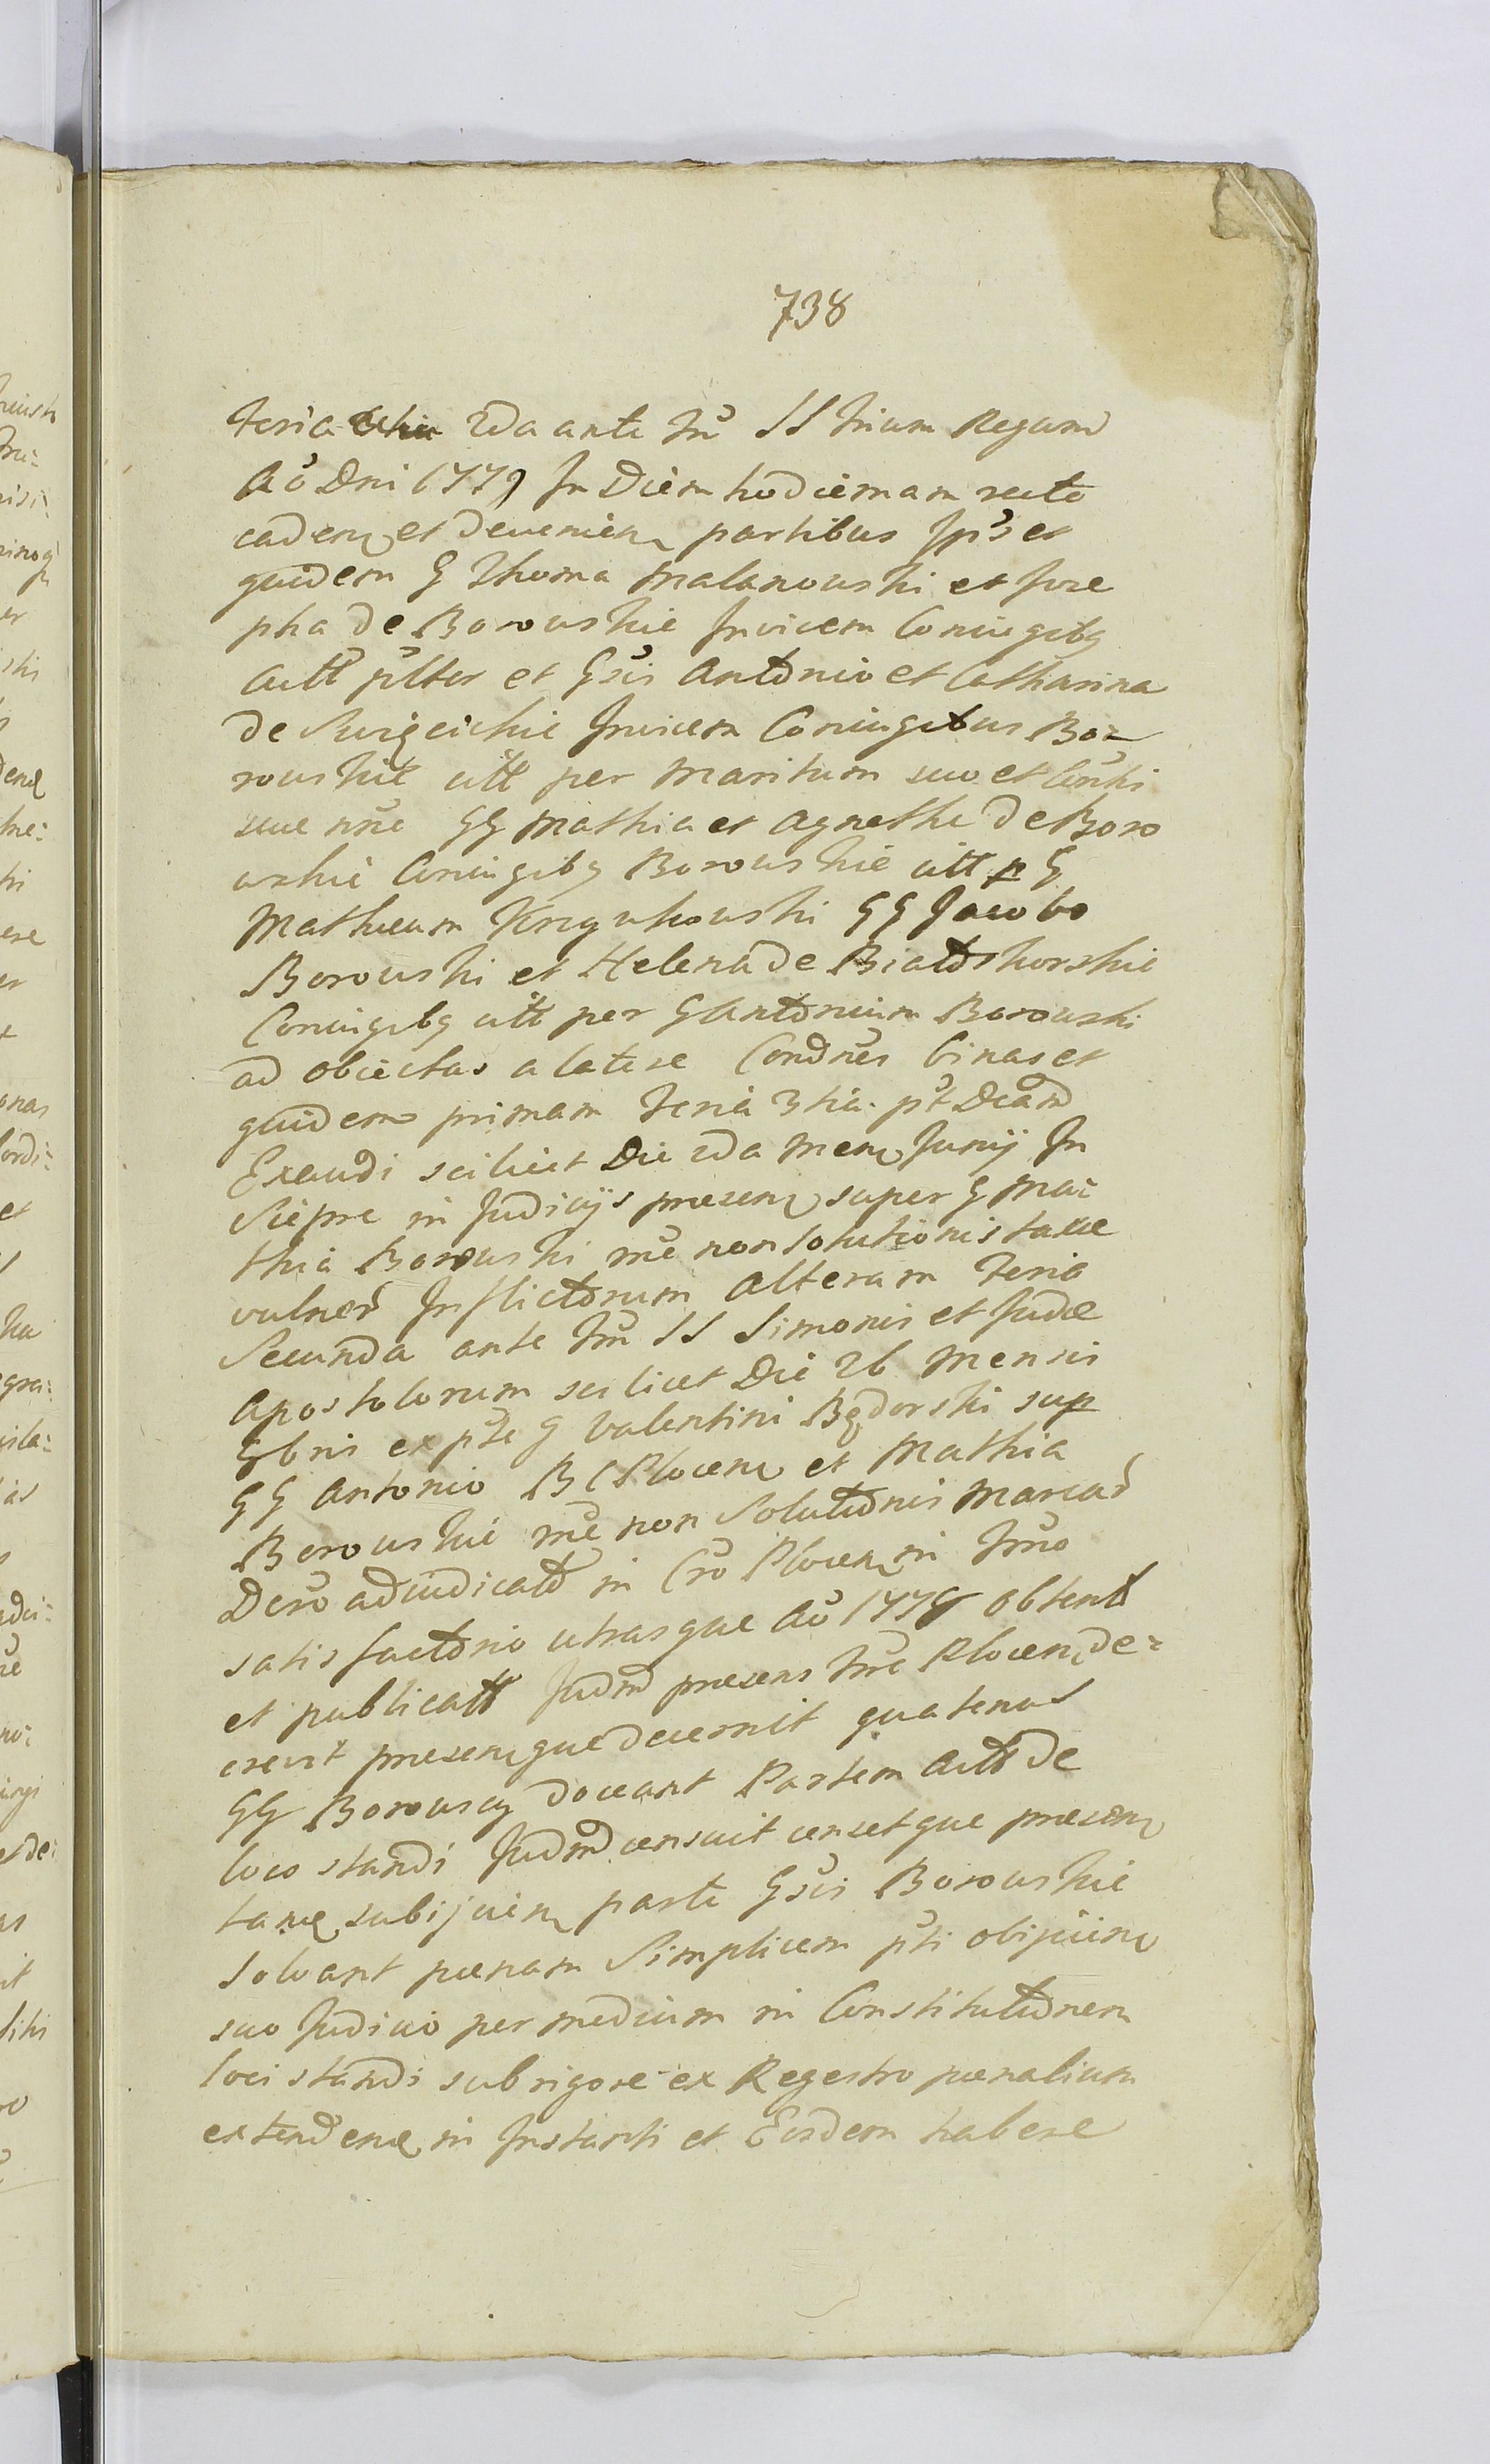 738
feria 2da ante fm̃ SS trium Regum
Aõ Dni 1779 In Diem hodiernam recte
caden et devenien partibus Ip̃s et
quidem G Thoma Malanowski et Jose
pha de Borowskie Invicem Coniugibq
Actt p̃lter et Gsis Antonio et Catharina
de Invicem Coniugibus Bo-
rowskie citt per maritum suo et Conthi
sue nñe GG Mathia et Agnethe de Boro
wskie Coniugibq Borowskie citt p G
Matheum Krzykowski GG Jacobo
Borowski et Helena de Białoskorskie
Coniugibq citt per G Antonium Borowski
ad obiectas a latere Condñes binas et
quidem primam feria 3tia p̃t Dcam
Exaudi scilicet Die 2da Men Junij In
Siepre in Judicijs presen super G Ma=
thia Borowski rñe non solutionis taxae
vulner Inflictorum alteram feria
Secunda ante fm̃ SS Simonis et Judae
Apostolorum scilicet Die 26 Mensis
8bris ex p̃te G Valentini Będorski sup
GG Antonio B C Plocen et Mathia
Borowskie rñe non Solutionis Marcar
Decro adiudicato in Cro Plocen in fmo
satisfactorio utrasque Aõ 1778 obtent
et publicatt Judm presens Tñre Plocen de=
crevit presenque decernit quatenus
GG Borowscy doceant Partem Actt de
loco standi Judm censuit censetque presen
tame subijcien parte Gsis Borowskie
solvant penam Simplicem p̃ti obijcien
suo Judicio per medium in Constitutionem
loci standi sub rigore ex Regestro penalium
extenden in Instanti et Eisdem habere